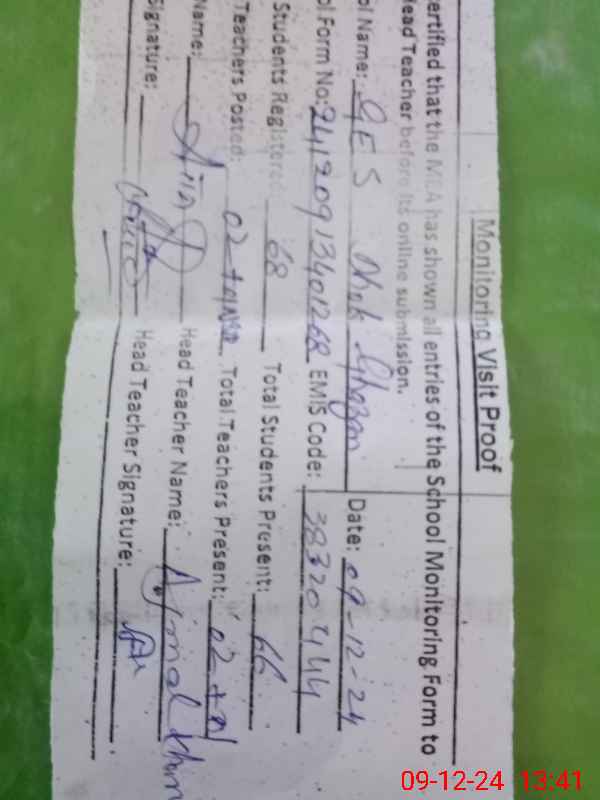 Monitoring Visit Proof
ertified that the MEA has shown all entries of the School Monitoring Form to
Head Teacher before its online submission.
ol Name: GES Dhok Ghazan Date: 09-12-24
ol Form No: 241209134012 68 EMIS Code: 38320444
Students Registered: 68 Total Students Present: 66
Teachers Posted: 02 + Total Teachers Present: 02 +
Name: Head Teacher Name: Ajmal Khan
Signature: Head Teacher Signature:
09-12-24 13:41